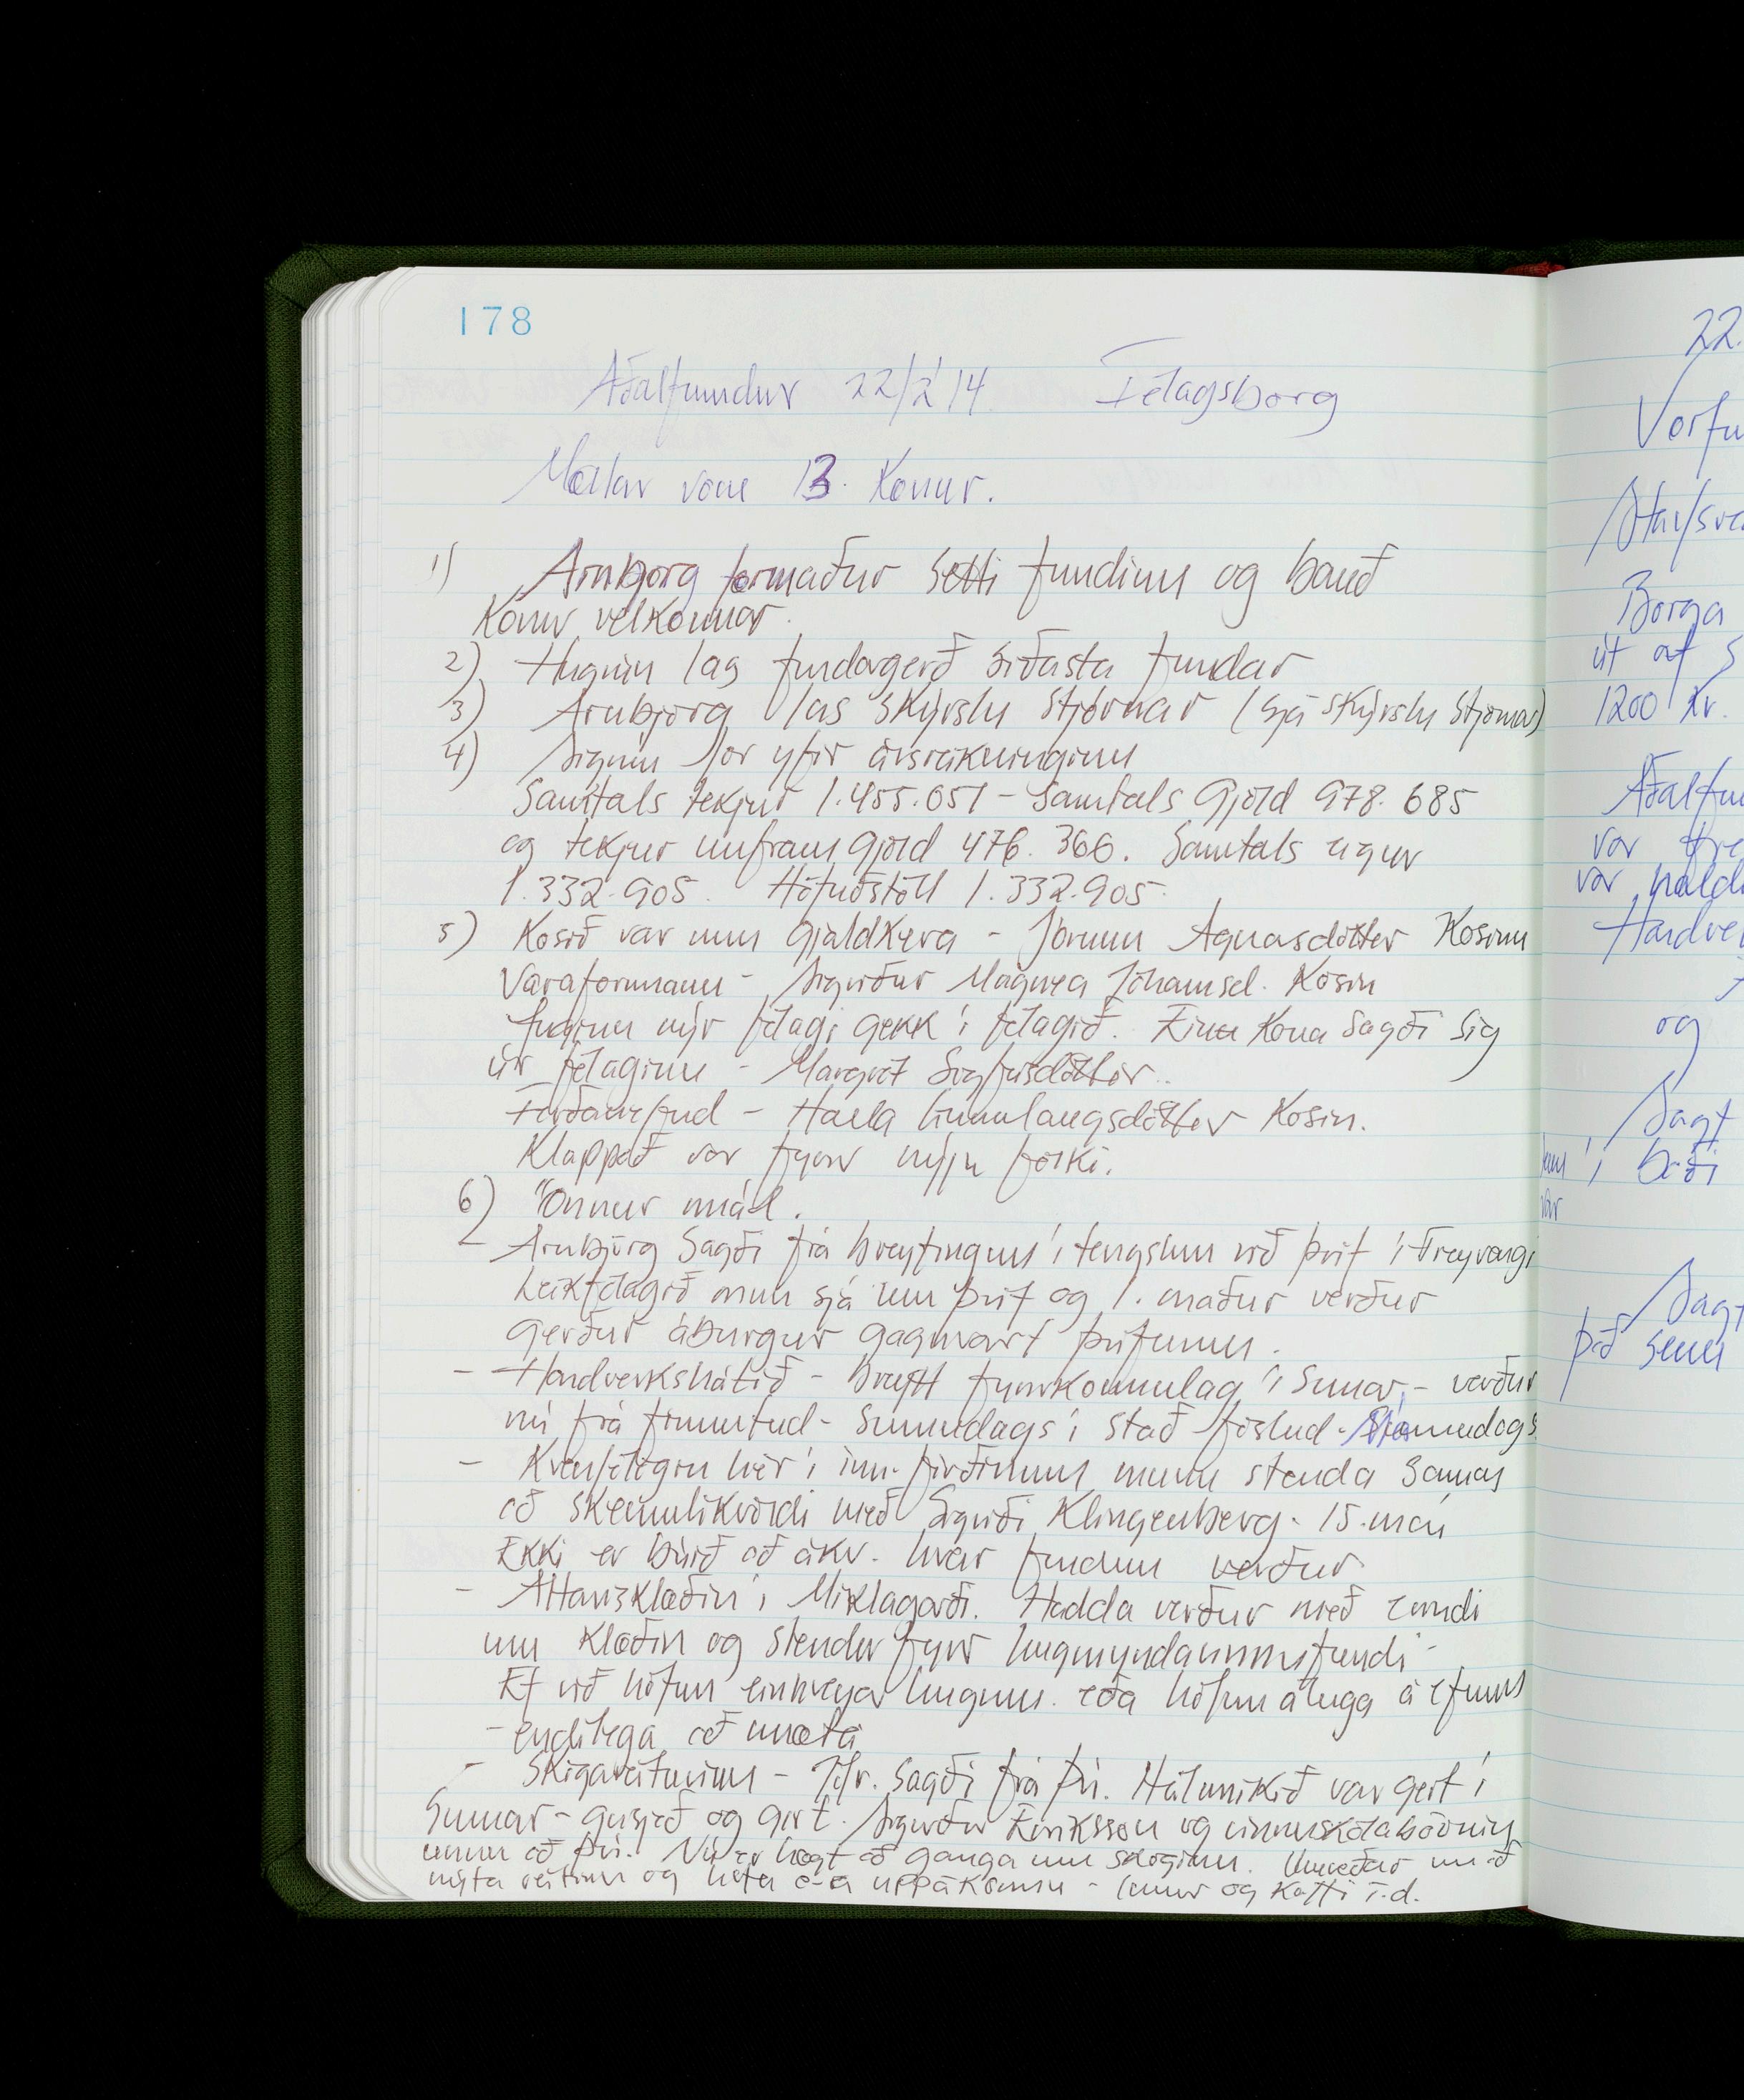 178
Aðalfundur 22/2 '14 Félagsborg
Mættar voru 13. konur.
1) Arnbjörg formaður setti fundinn og bauð
konur velkomnar.
2) Huginn las fundargerð síðasta fundar
3) Arnbjörg las skýrslu stjórnar (sjá skýrslu stjórnar)
4) Sigrún fór yfir ársreikninginn
Samtals tekjur 1.455.051 - Samtals gjöld 978.685
og tekjur umfram gjöld 476.366. Samtals eigur
1.332.905. Höfuðstóll 1.332.905.
5) Kosið var um gjaldkera - Jórunn Agnarsdóttir kosinn
Varaformann - Sigríður Magnea Jóhannsd. kosin
Enginn nýr félagi gekk í félagið. Eina kona sagði sig
úr félaginu - Margrét Sigfúsdóttir.
Ferðanefnd - Halla Gunnlaugsdóttir kosin.
Klappað var fyrir nýju fólki.
6) Önnur mál.
- Arnbjörg sagði frá breytingum í tengslum við þrif í Freyvangi
Leikfélagið mun sjá um þrif og 1. maður verður
gerður ábyrgur gagnvart þrifunum.
- Handverkshátíð - breytt fyrirkomulag í sumar - verður
nú frá fimmtud - sunnudags í stað föstud - mánudags
- Kvenfélögin hér í inn-firðinum munu standa saman
að skemmtikvöldi með Sigríði Klingenberg. 15. maí
Ekki er búið að ákv. hvar fundum verður
- Altarisklæðin í Miklagarði. Hadda verður með erindi
um klæðin og stendur fyrir hugmyndavinnufundi -
Ef við höfum einhverjar hugm. eða höfum áhuga á efninu
- endilega að mæta
- Skógarreiturinn - sagði frá því. Heilmikið var gert í
sumar - grisjað og gert. Sigurður Eiríksson og vinnuskólabörnin
unnu að því. Nú er hægt að ganga um skóginn. Umræðar um að
nýta reitinn og hafa e-a uppákomu - og kaffi t.d.
22.
Borga
út af s
1200 kr.
var
var
og
Sagt
í bæði
var
það sem